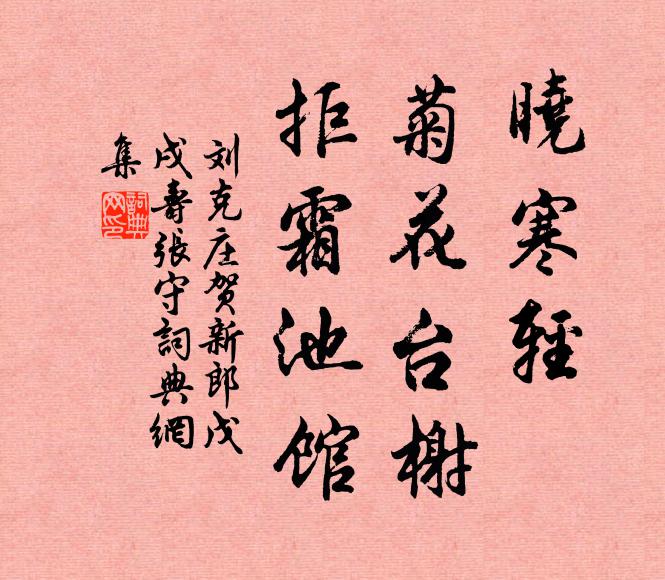 曉寒輕
菊花台榭
拒霜池馆
刘克庄贺新郎戊
戌壽張守詞典網
集
詞典網印